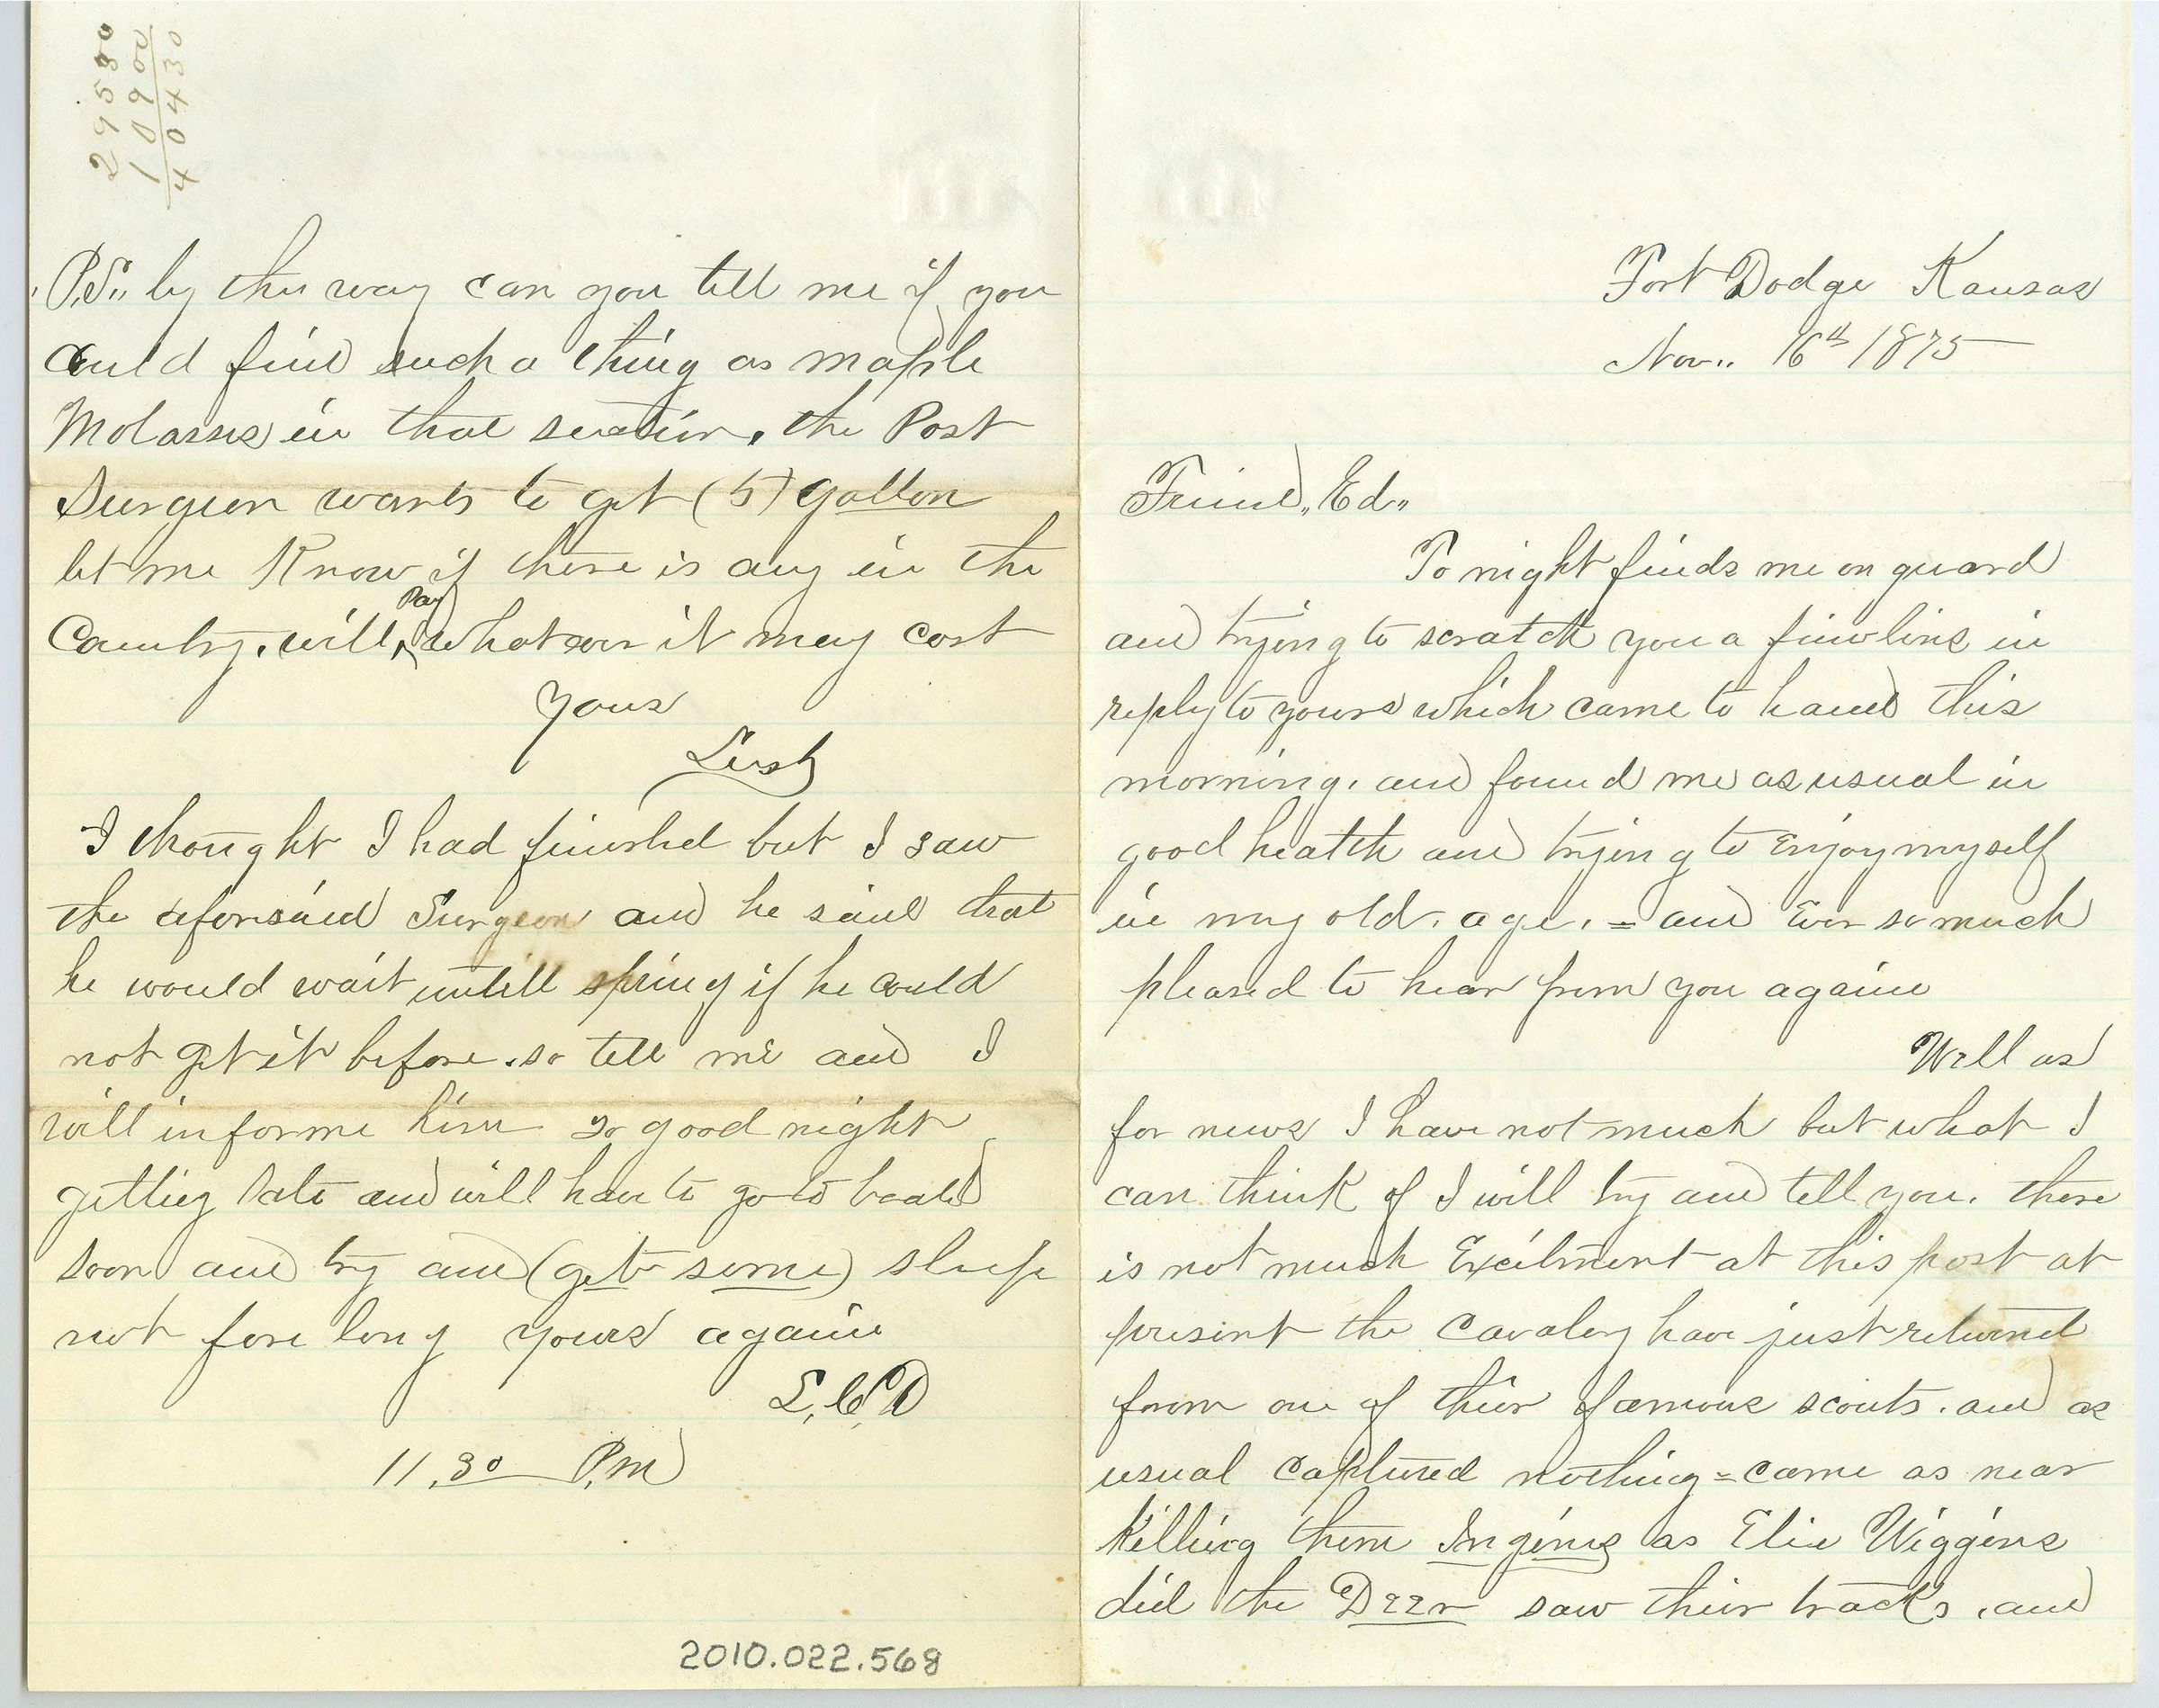 Fort Dodge Kansas
Nov.. 16th 1875
Friend,, Ed,,
To night finds me on guard
and trying to scratch you a fiew lins in
reply to yours which came to hand this
morning. and found me as usual in
good health and trying to Enjoy myself
in my old. age. = and Ever so much
pleased to hear from you againe
Well as
for news I have not much but what I
can think of I will try and tell you. there
is not much Excitment at this post at
present the Cavalry have just returned
from one of their famous scouts. and as
usual captured nothing = came as near
Killing them Ingins as Elie Wiggins
did the Deer saw their tracks. and
29530
10900
40430
P.S.. by the way can you tell me if you
could find such a thing as maple
Molasses in that section. the Post
Surgeon wants to get (5) gallon
let me Know if there is any in the
Country. will Pay whatever it may cost
Yours
Lush
I thought I had finished but I saw
the aforesaid Surgeon and he said that
he would wait untill spring if he could
not get it before. so tell me and I
will informe him so good night
getting late and will have to go to beadd
soon and try and (get some) sleep
not fore long yours againe
L,C,D
11,30 P.M
2010.022.568